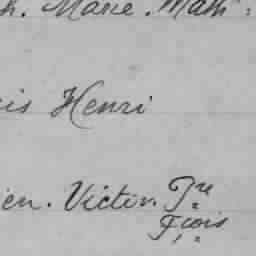 h. Marie. Math.
is Henri
ien. Victor. Jre
Fçois